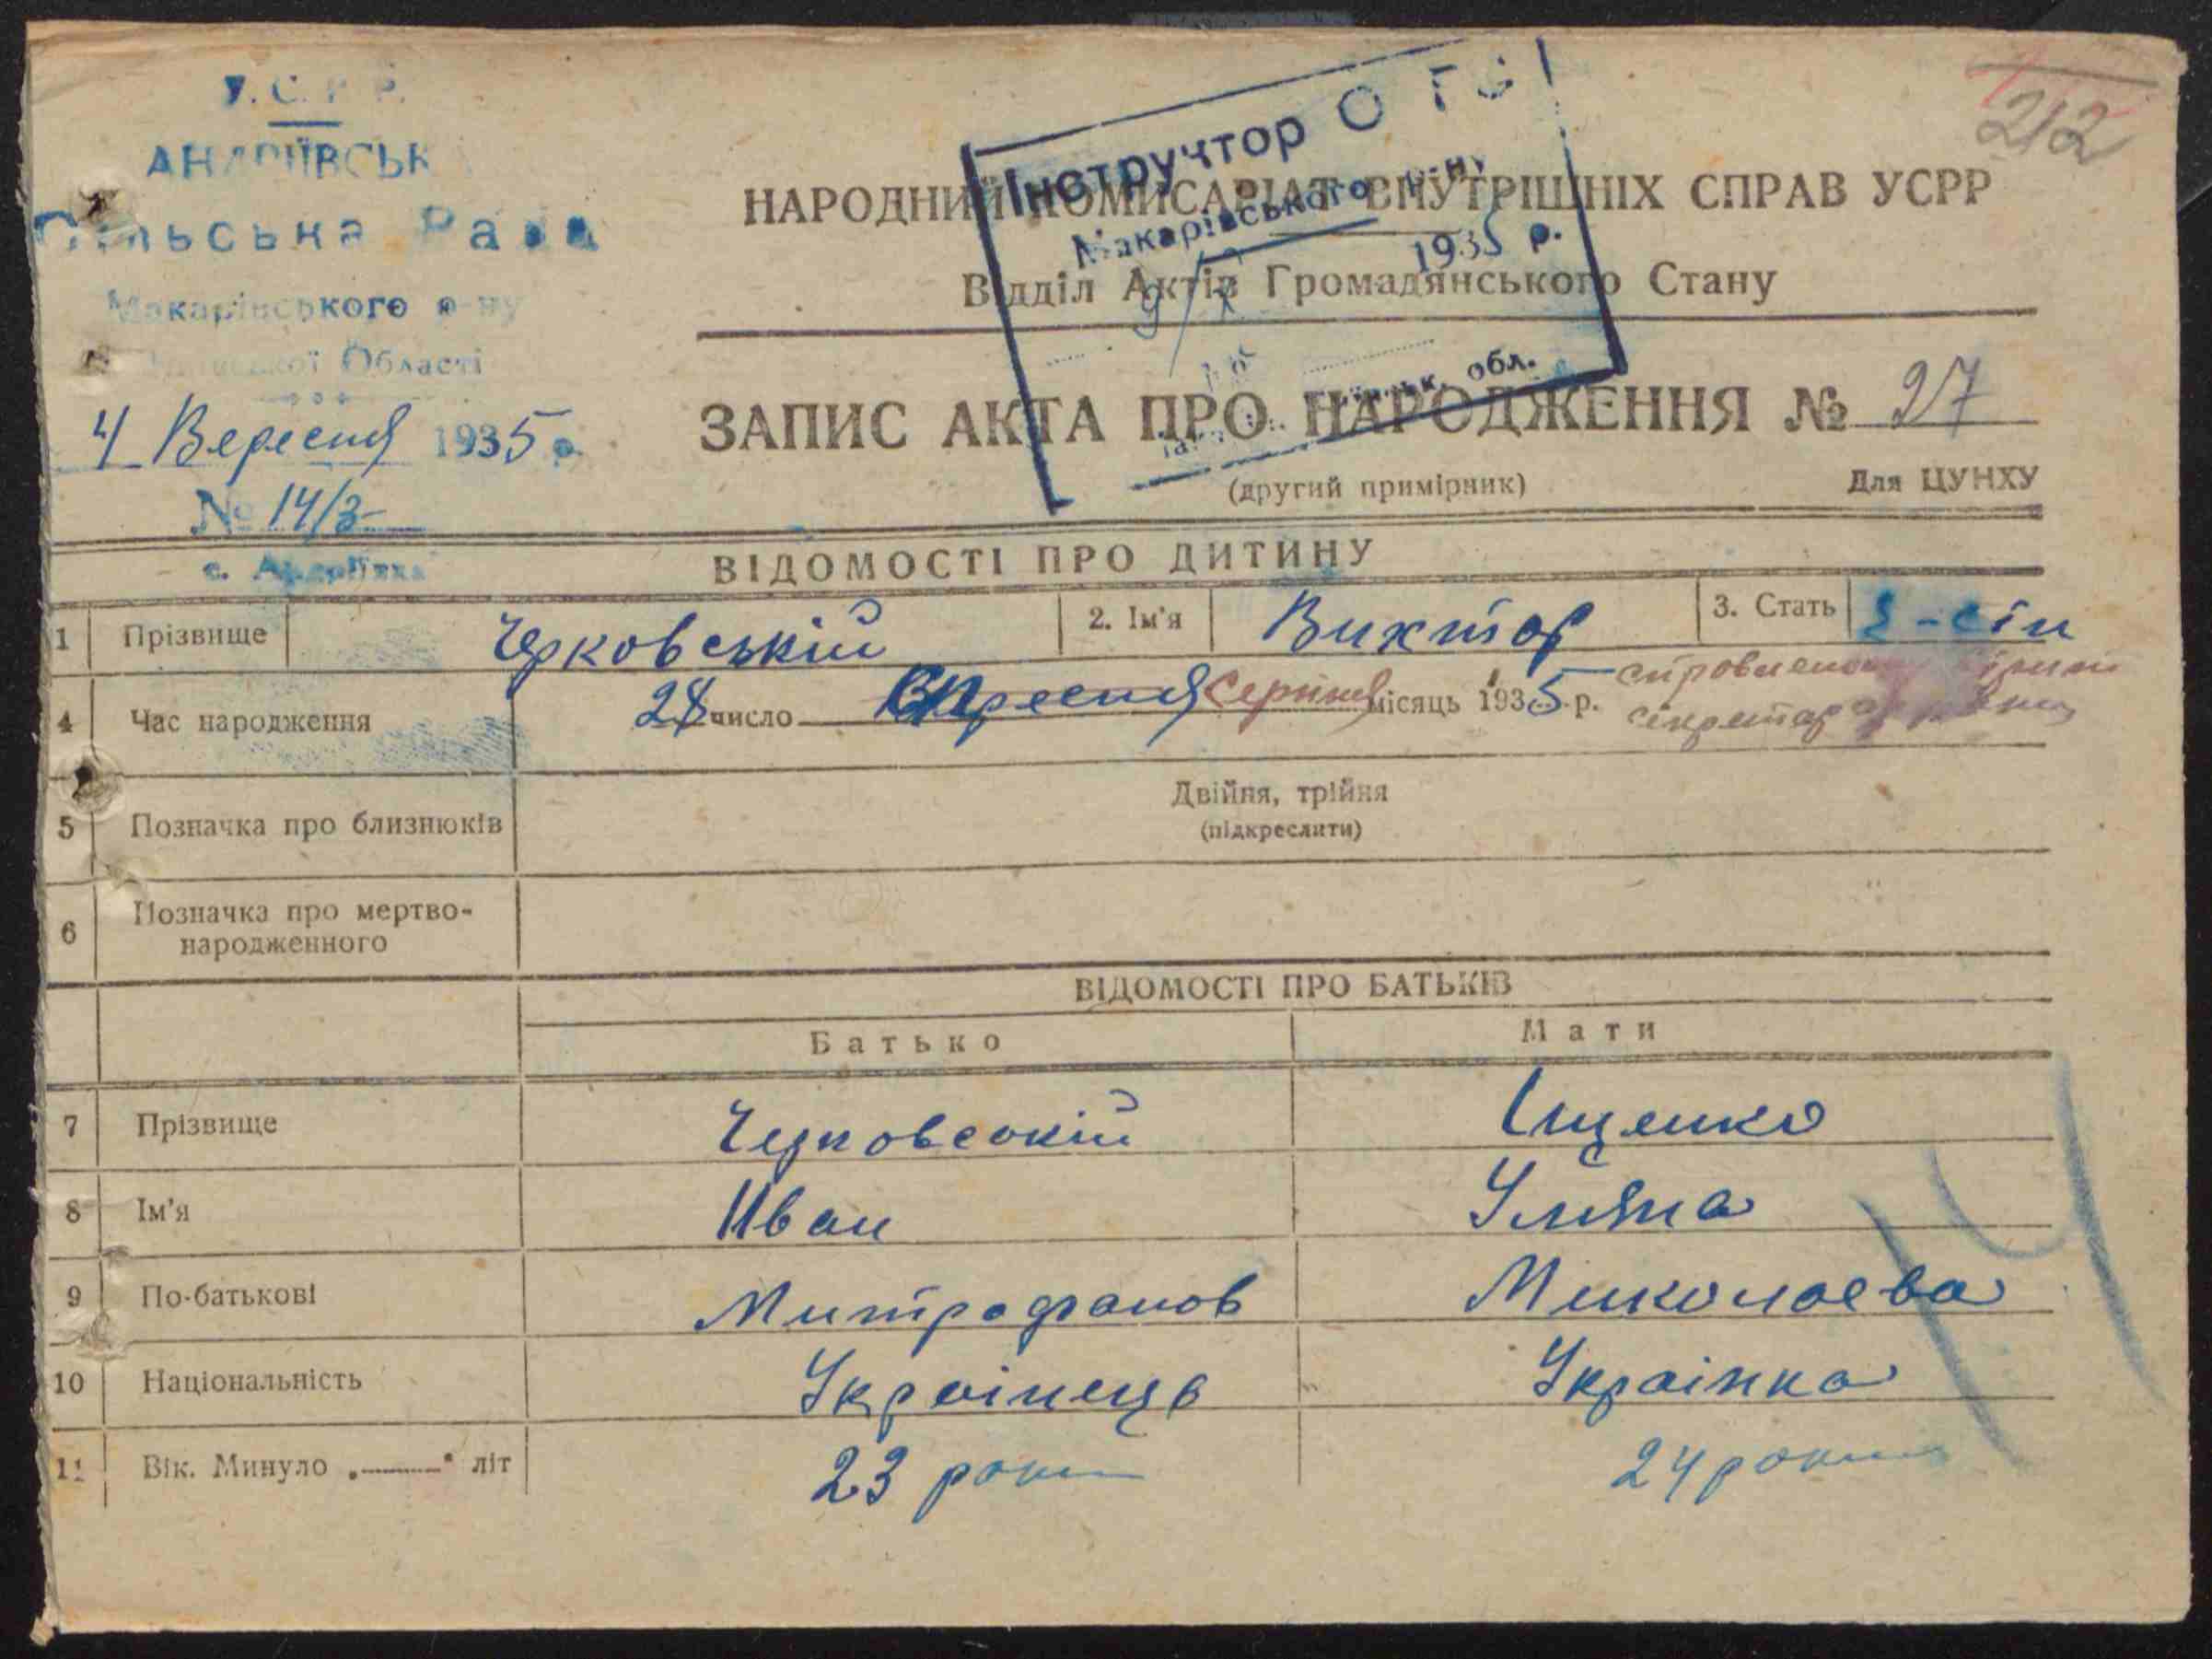 У.С.Р.Р.
АНДРІЇВСЬК
Сільська Рада
Макарівського р-ну
Київської Області
4 Вересня 1935 р.
№ 14/3-
с. Андріївка
Інструктор О Г С
Макарівського р-ну
9/X 1935 р.
обл.
212
НАРОДНИЙ КОМИСАРІАТ ВНУТРІШНІХ СПРАВ УСРР
Відділ Актів Громадянського Стану
ЗАПИС АКТА ПРО НАРОДЖЕННЯ № 27
(другий примірник) Для ЦУНХУ
ВІДОМОСТІ ПРО ДИТИНУ
1 Прізвище Черковській 2. Ім'я Виктор 3. Стать 1-сін
4 Час народження 28 число Вересня Серпня місяць 1935 р.
секретар
5 Позначка про близнюків Двійня, трійня
(підкреслити)
6 Позначка про мертво-
народженного
ВІДОМОСТІ ПРО БАТЬКІВ
Батько Мати
7 Прізвище Черковській Іщенко
8 Ім'я Иван Уляна
9 По-батькові Митрофанов Миколаева
10 Національність Українець Українка
11 Вік. Минуло „———" літ 23 роки 24 роки